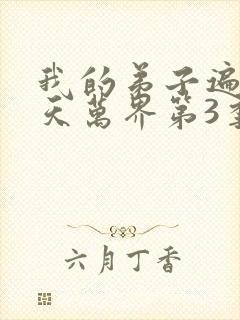 我的弟子遍
天萬界第3季
六月丁香